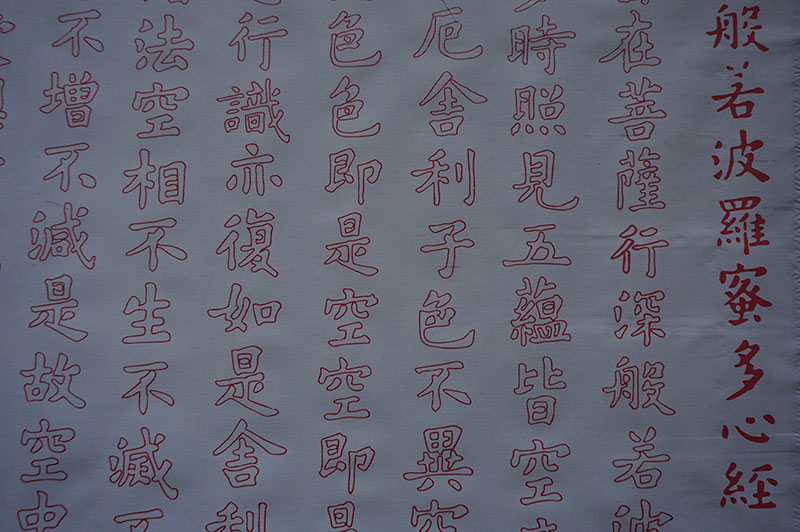 般若波羅蜜多心經
在菩薩行深般若波
時照見五蘊皆空
厄舍利子色不異空
色色即是空空即是
行識亦復如是舍利
法空相不生不滅不
不增不減是故空中